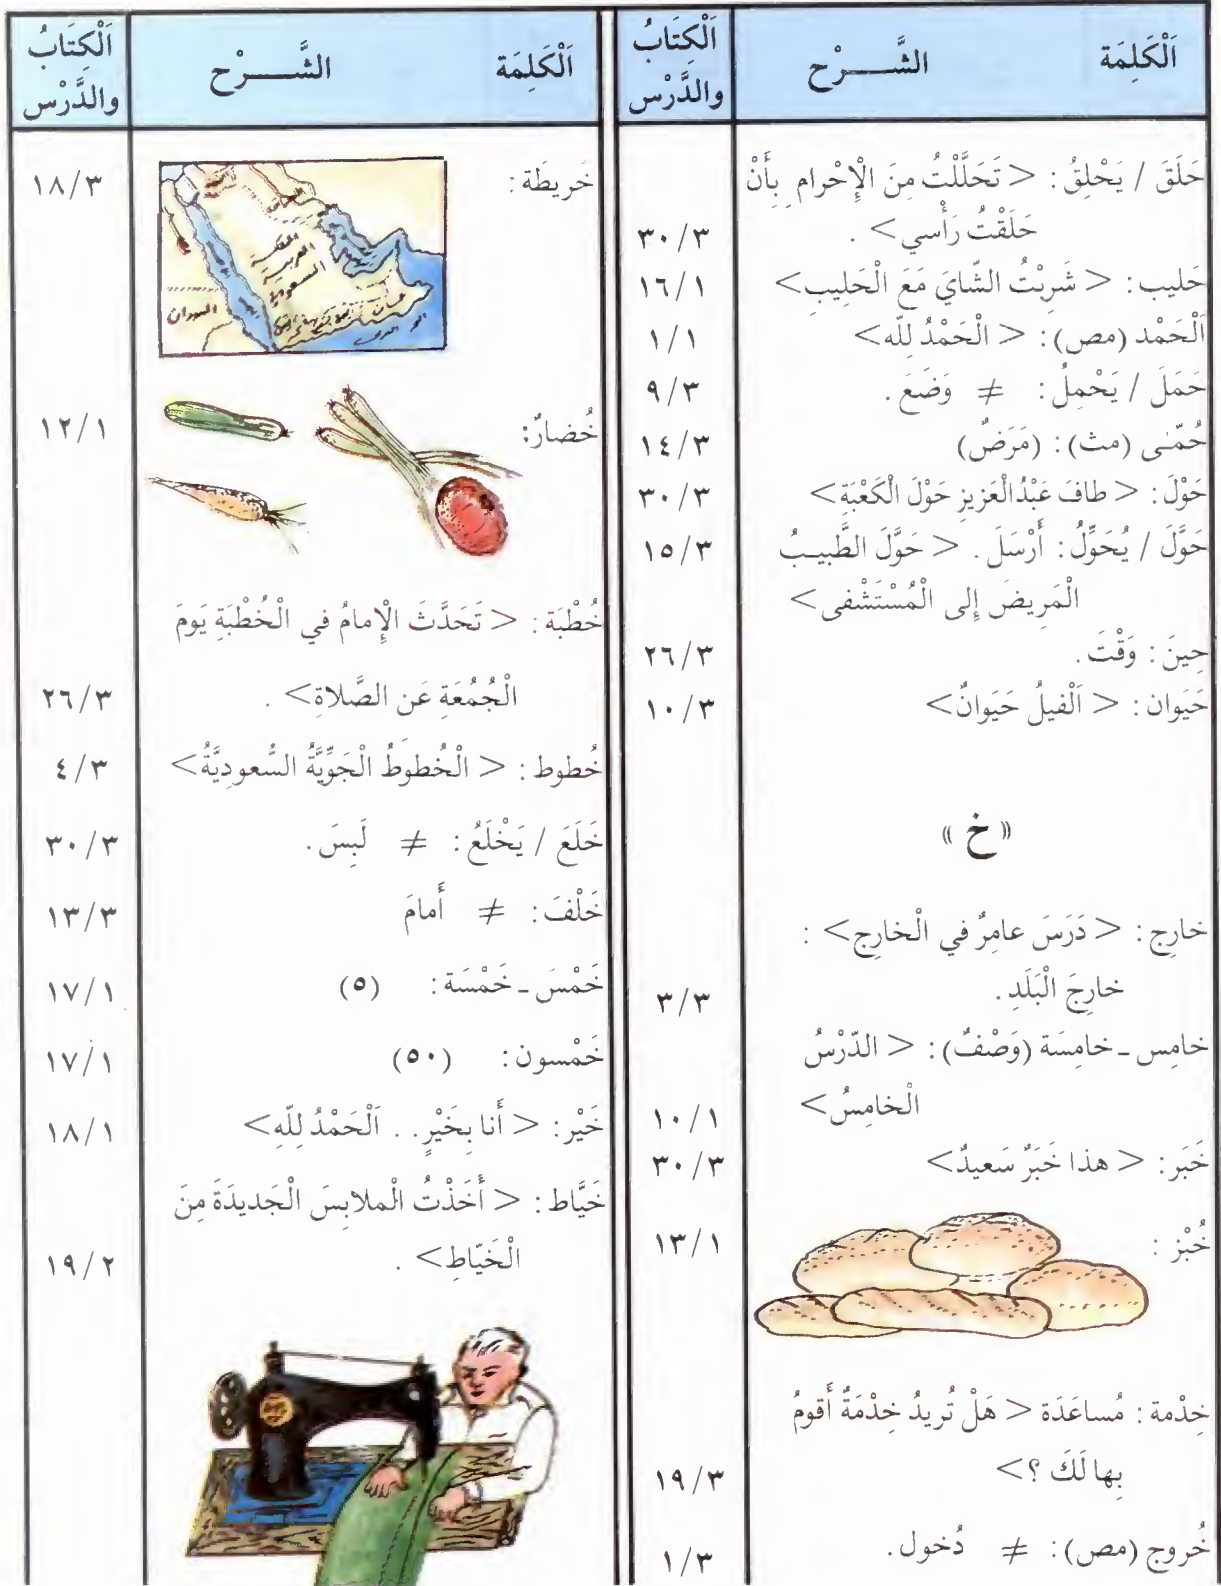 اَلْكَلِمَة الشَّـــرْح اَلْكِتَابُ والدَّرْس
حَلَقَ / يَحْلِقُ : < تَحَلَّلْتُ مِنَ الْإِحْرام بِأَنْ
حَلَقْتُ رَأْسي> . ٣٠/٣
حَليب : < شَرِبْتُ الشّايَ مَعَ الْحَلِيبِ> ١٦/١
اَلْحَمْد (مص) : < الْحَمْدُ لِلّه> ١/١
حَمَلَ / يَحْمِلُ : ≠ وَضَعَ . ٩/٣
حُمّى (مث) : (مَرَضٌ) ١٤/٣
حَوْلَ : < طافَ عَبْدُالْعَزيزِ حَوْلَ الْكَعْبَةِ> ٣٠/٣
حَوَّلَ / يُحَوِّلُ : أَرْسَلَ . < حَوَّلَ الطَّبيبُ ١٥/٣
الْمَرِيضَ إِلى الْمُسْتَشْفى>
حِينَ : وَقْتَ . ٢٦/٣
حَيَوان : < اَلْفيلُ حَيَوانٌ> ١٠/٣
« خ »
خارِج : < دَرَسَ عامِرٌ في الْخارِجِ> :
خارِجَ الْبَلَدِ . ٣/٣
خامِس ـ خامِسَة (وَصْفٌ) : < الدّرْسُ
الْخامِسُ> ١٠/١
خَبَر : < هذا خَبَرٌ سَعيدٌ> ٣٠/٣
خُبْز : ١٣/١
خِدْمة : مُساعَدَة < هَلْ تُريدُ خِدْمَةً أَقومُ
بِها لَكَ ؟> ١٩/٣
خُروج (مص) : ≠ دُخول . ١/٣
اَلْكَلِمَة الشَّـــرْح اَلْكِتَابُ والدَّرْس
خَريطَة : ١٨/٣
السودان
خُضارٌ: ١٢/١
خُطْبَة : < تَحَدَّثَ الْإِمامُ في الْخُطْبَةِ يَومَ
الْجُمُعَةِ عَن الصَّلاةِ> . ٢٦/٣
خُطوط : < الْخُطوطُ الْجَوِّيَّةُ السُّعودِيَّةُ> ٤/٣
خَلَعَ / يَخْلَعُ : ≠ لَبِسَ . ٣٠/٣
خَلْفَ : ≠ أَمامَ ١٣/٣
خَمْسَ ـ خَمْسَة : (٥) ١٧/١
خَمْسون : (٥٠) ١٧/١
خَيْر : < أَنا بِخَيْرٍ . . اَلْحَمْدُ لِلّهِ> ١٨/١
خَيَّاط : < أَخَذْتُ الْملابِسَ الْجَديدَةَ مِنَ
الْخَيّاطِ> . ١٩/٢